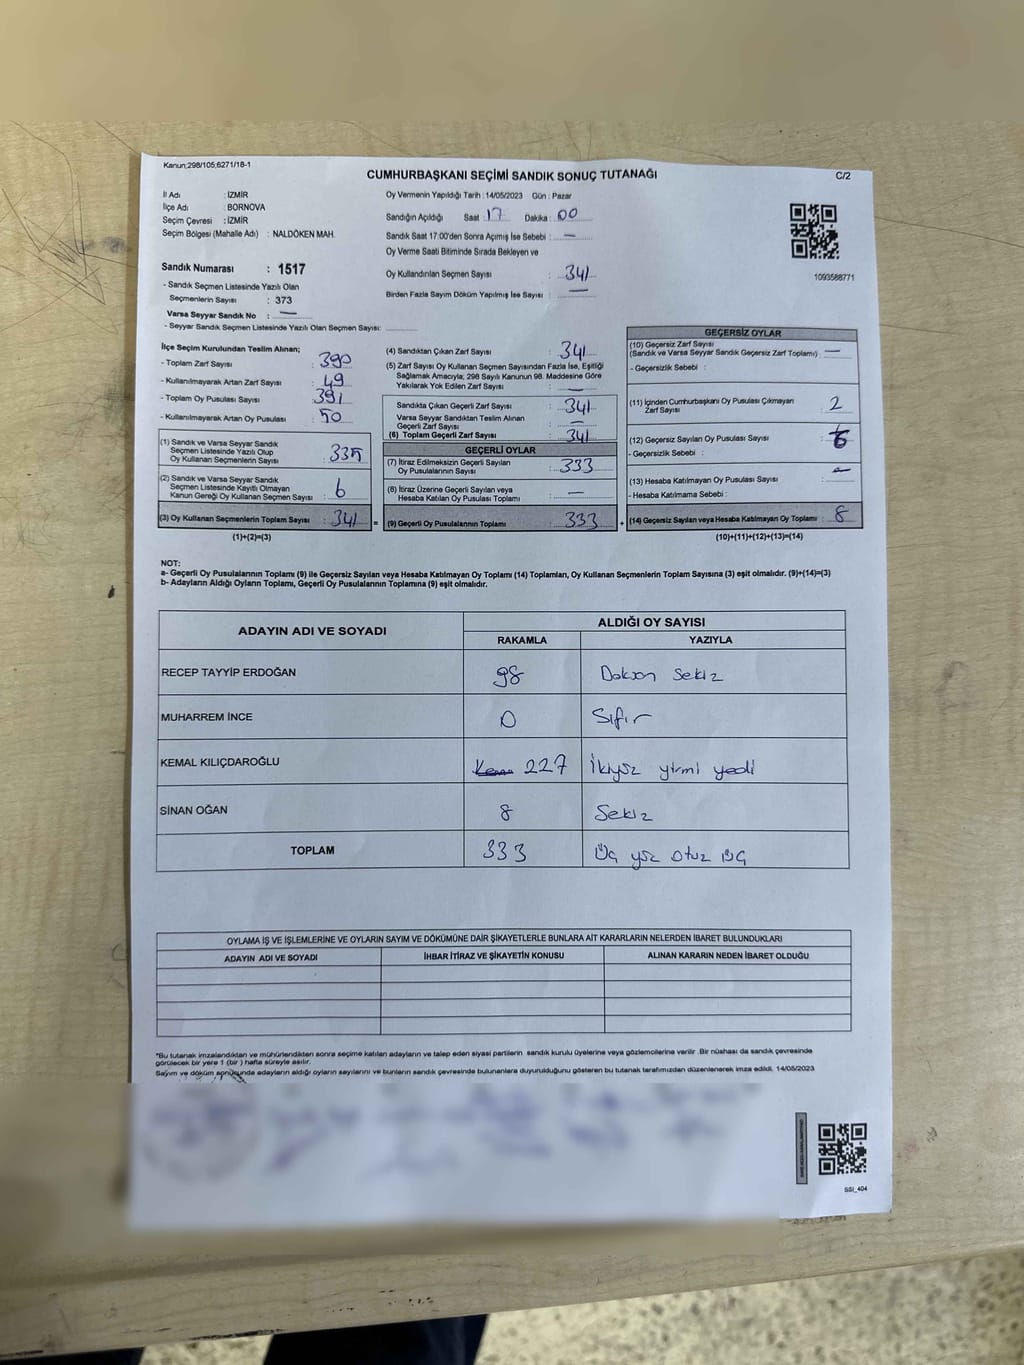 Kanun:298/105;6271/18-1
CUMHURBAŞKANI SEÇİMİ SANDIK SONUÇ TUTANAĞI
C/2
İl Adı : İZMİR
İlçe Adı : BORNOVA
Seçim Çevresi : İZMİR
Seçim Bölgesi (Mahalle Adı) : NALDÖKEN MAH.
Sandık Numarası : 1517
- Sandık Seçmen Listesinde Yazılı Olan
Seçmenlerin Sayısı : 373
Varsa Seyyar Sandık No : —
- Seyyar Sandık Seçmen Listesinde Yazılı Olan Seçmen Sayısı:
Oy Vermenin Yapıldığı Tarih : 14/05/2023 Gün : Pazar
Sandığın Açıldığı Saat 17 Dakika : 00
Sandık Saat 17:00'den Sonra Açımış İse Sebebi : —
Oy Verme Saati Bitiminde Sırada Bekleyen ve
Oy Kullandırılan Seçmen Sayısı : 341
Birden Fazla Sayım Döküm Yapılmış İse Sayısı : —
1093588771
İlçe Seçim Kurulundan Teslim Alınan;
- Toplam Zarf Sayısı : 390
- Kullanılmayarak Artan Zarf Sayısı : 49
- Toplam Oy Pusulası Sayısı : 391
- Kullanılmayarak Artan Oy Pusulası : 50
(1) Sandık ve Varsa Seyyar Sandık
Seçmen Listesinde Yazılı Olup
Oy Kullanan Seçmenlerin Sayısı : 335
(2) Sandık ve Varsa Seyyar Sandık
Seçmen Listesinde Kayıtlı Olmayan
Kanun Gereği Oy Kullanan Seçmen Sayısı : 6
(3) Oy Kullanan Seçmenlerin Toplam Sayısı : 341 =
(1)+(2)=(3)
(4) Sandıktan Çıkan Zarf Sayısı : 341
(5) Zarf Sayısı Oy Kullanan Seçmen Sayısından Fazla İse, Eşitliği
Sağlamak Amacıyla; 298 Sayılı Kanunun 98. Maddesine Göre
Yakılarak Yok Edilen Zarf Sayısı : —
Sandıkta Çıkan Geçerli Zarf Sayısı : 341
Varsa Seyyar Sandıktan Teslim Alınan
Geçerli Zarf Sayısı : —
(6) Toplam Geçerli Zarf Sayısı : 341
GEÇERLİ OYLAR
(7) İtiraz Edilmeksizin Geçerli Sayılan
Oy Pusulalarının Sayısı : 333
(8) İtiraz Üzerine Geçerli Sayılan veya
Hesaba Katılan Oy Pusulası Toplamı : —
(9) Geçerli Oy Pusulalarının Toplamı : 333 +
GEÇERSİZ OYLAR
(10) Geçersiz Zarf Sayısı
(Sandık ve Varsa Seyyar Sandık Geçersiz Zarf Toplamı) : —
- Geçersizlik Sebebi :
(11) İçinden Cumhurbaşkanı Oy Pusulası Çıkmayan
Zarf Sayısı : 2
(12) Geçersiz Sayılan Oy Pusulası Sayısı : 6
- Geçersizlik Sebebi :
(13) Hesaba Katılmayan Oy Pusulası Sayısı : —
- Hesaba Katılmama Sebebi :
(14) Geçersiz Sayılan veya Hesaba Katılmayan Oy Toplamı : 8
(10)+(11)+(12)+(13)=(14)
NOT:
a- Geçerli Oy Pusulalarının Toplamı (9) ile Geçersiz Sayılan veya Hesaba Katılmayan Oy Toplamı (14) Toplamları, Oy Kullanan Seçmenlerin Toplam Sayısına (3) eşit olmalıdır. (9)+(14)=(3)
b- Adayların Aldığı Oyların Toplamı, Geçerli Oy Pusulalarının Toplamına (9) eşit olmalıdır.
ADAYIN ADI VE SOYADI
ALDIĞI OY SAYISI
RAKAMLA YAZIYLA
RECEP TAYYİP ERDOĞAN 98 Doksan Sekiz
MUHARREM İNCE 0 Sıfır
KEMAL KILIÇDAROĞLU 227 İkiyüz yirmi yedi
SİNAN OĞAN 8 Sekiz
TOPLAM 333 Üç yüz otuz üç
OYLAMA İŞ VE İŞLEMLERİNE VE OYLARIN SAYIM VE DÖKÜMÜNE DAİR ŞİKAYETLERLE BUNLARA AİT KARARLARIN NELERDEN İBARET BULUNDUKLARI
ADAYIN ADI VE SOYADI İHBAR İTİRAZ VE ŞİKAYETİN KONUSU ALINAN KARARIN NEDEN İBARET OLDUĞU
*Bu tutanak imzalandıktan ve mühürlendikten sonra seçime katılan adayların ve talep eden siyasi partilerin sandık kurulu üyelerine veya gözlemcilerine verilir .Bir nüshası da sandık çevresinde
görülecek bir yere 1 (bir ) hafta süreyle asılır.
Sayım ve döküm sonucunda adayların aldığı oyların sayılarını ve bunların sandık çevresinde bulunanlara duyurulduğunu gösteren bu tutanak tarafımızdan düzenlenerek imza edildi. 14/05/2023
SSI_404